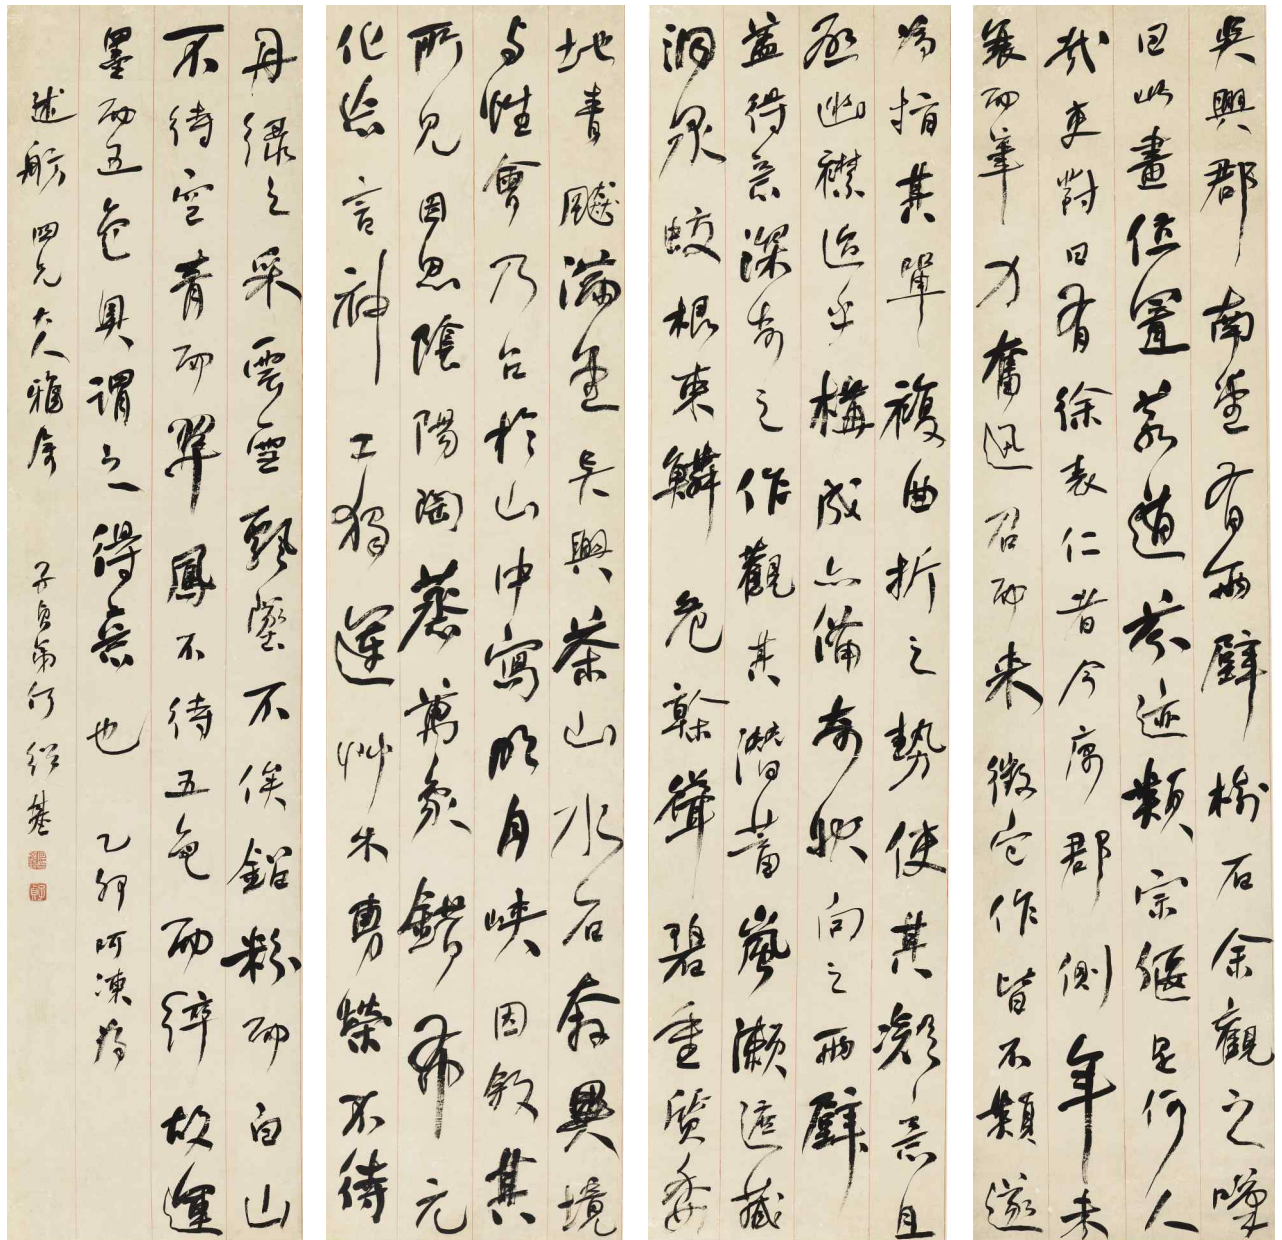 吳興郡南堂有兩壁樹石余觀之嘆
曰此畫位置若道芬迹類宗偃是何人
哉吏對曰有徐表仁者今寓郡側年未
衰而筆力奮迅召而來徵它作皆不類遂
指其單複曲折之勢使其凝意且
啟幽襟迨乎構成亦備奇狀向之兩壁
蓋得意深奇之作觀其潛蓄嵐瀨遮藏
洞泉蛟根束鱗危幹聳碧重質委
地青飈滿堂吳興茶山水石奔異境
與性會乃召於山中寫明月峽因敘其
所見因思陰陽陶蒸萬象錯布元
化忘言神工獨運草木勇榮不待
丹綠之采雲雪飄颺不俟鉛粉而白山
不待空青而翠鳳不待五色而綷故運
墨而五色具謂之得意也
述舫四兄大人雅屬 子貞弟何紹基 乙卯呵凍